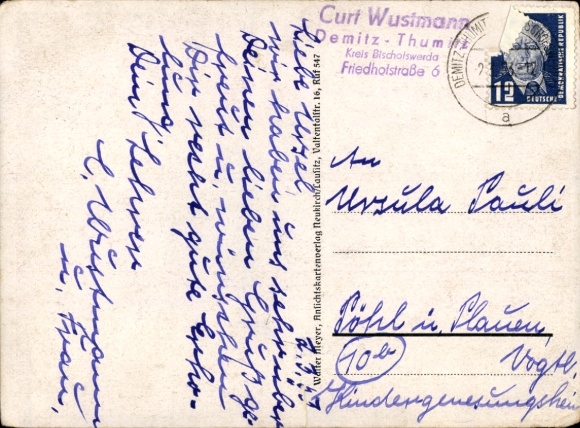 Liebe Ursel
wir haben uns sehr über
Deinen lieben Gruß ge-
freut u. wünschen
Dir recht gute Erho-
lung
Dein Lehrer
C. Wustmann
u. Frau.
Walter Meyer, Ansichtskartenverlag Neukirch/Lausitz, Valtentalstr. 16, Ruf 547
Curt Wustmann
Demitz-Thumitz
Kreis Bischofswerda
Friedhofstraße 6
DEMITZ-THUMITZ
a
12
DEUTSCHE
DEMOKRATISCHE REPUBLIK
An
Ursula Pauli
Pöhl ü. Plauen
10b Vogtl.
Kindergenesungsheim